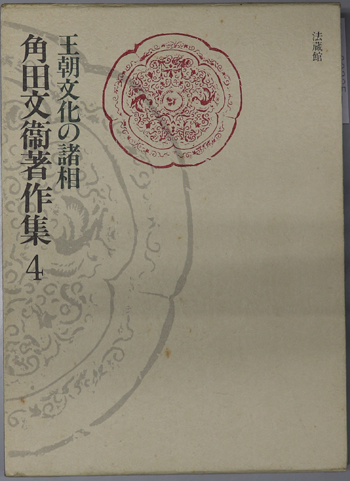 法蔵館
王朝文化の諸相
角田文衞著作集4